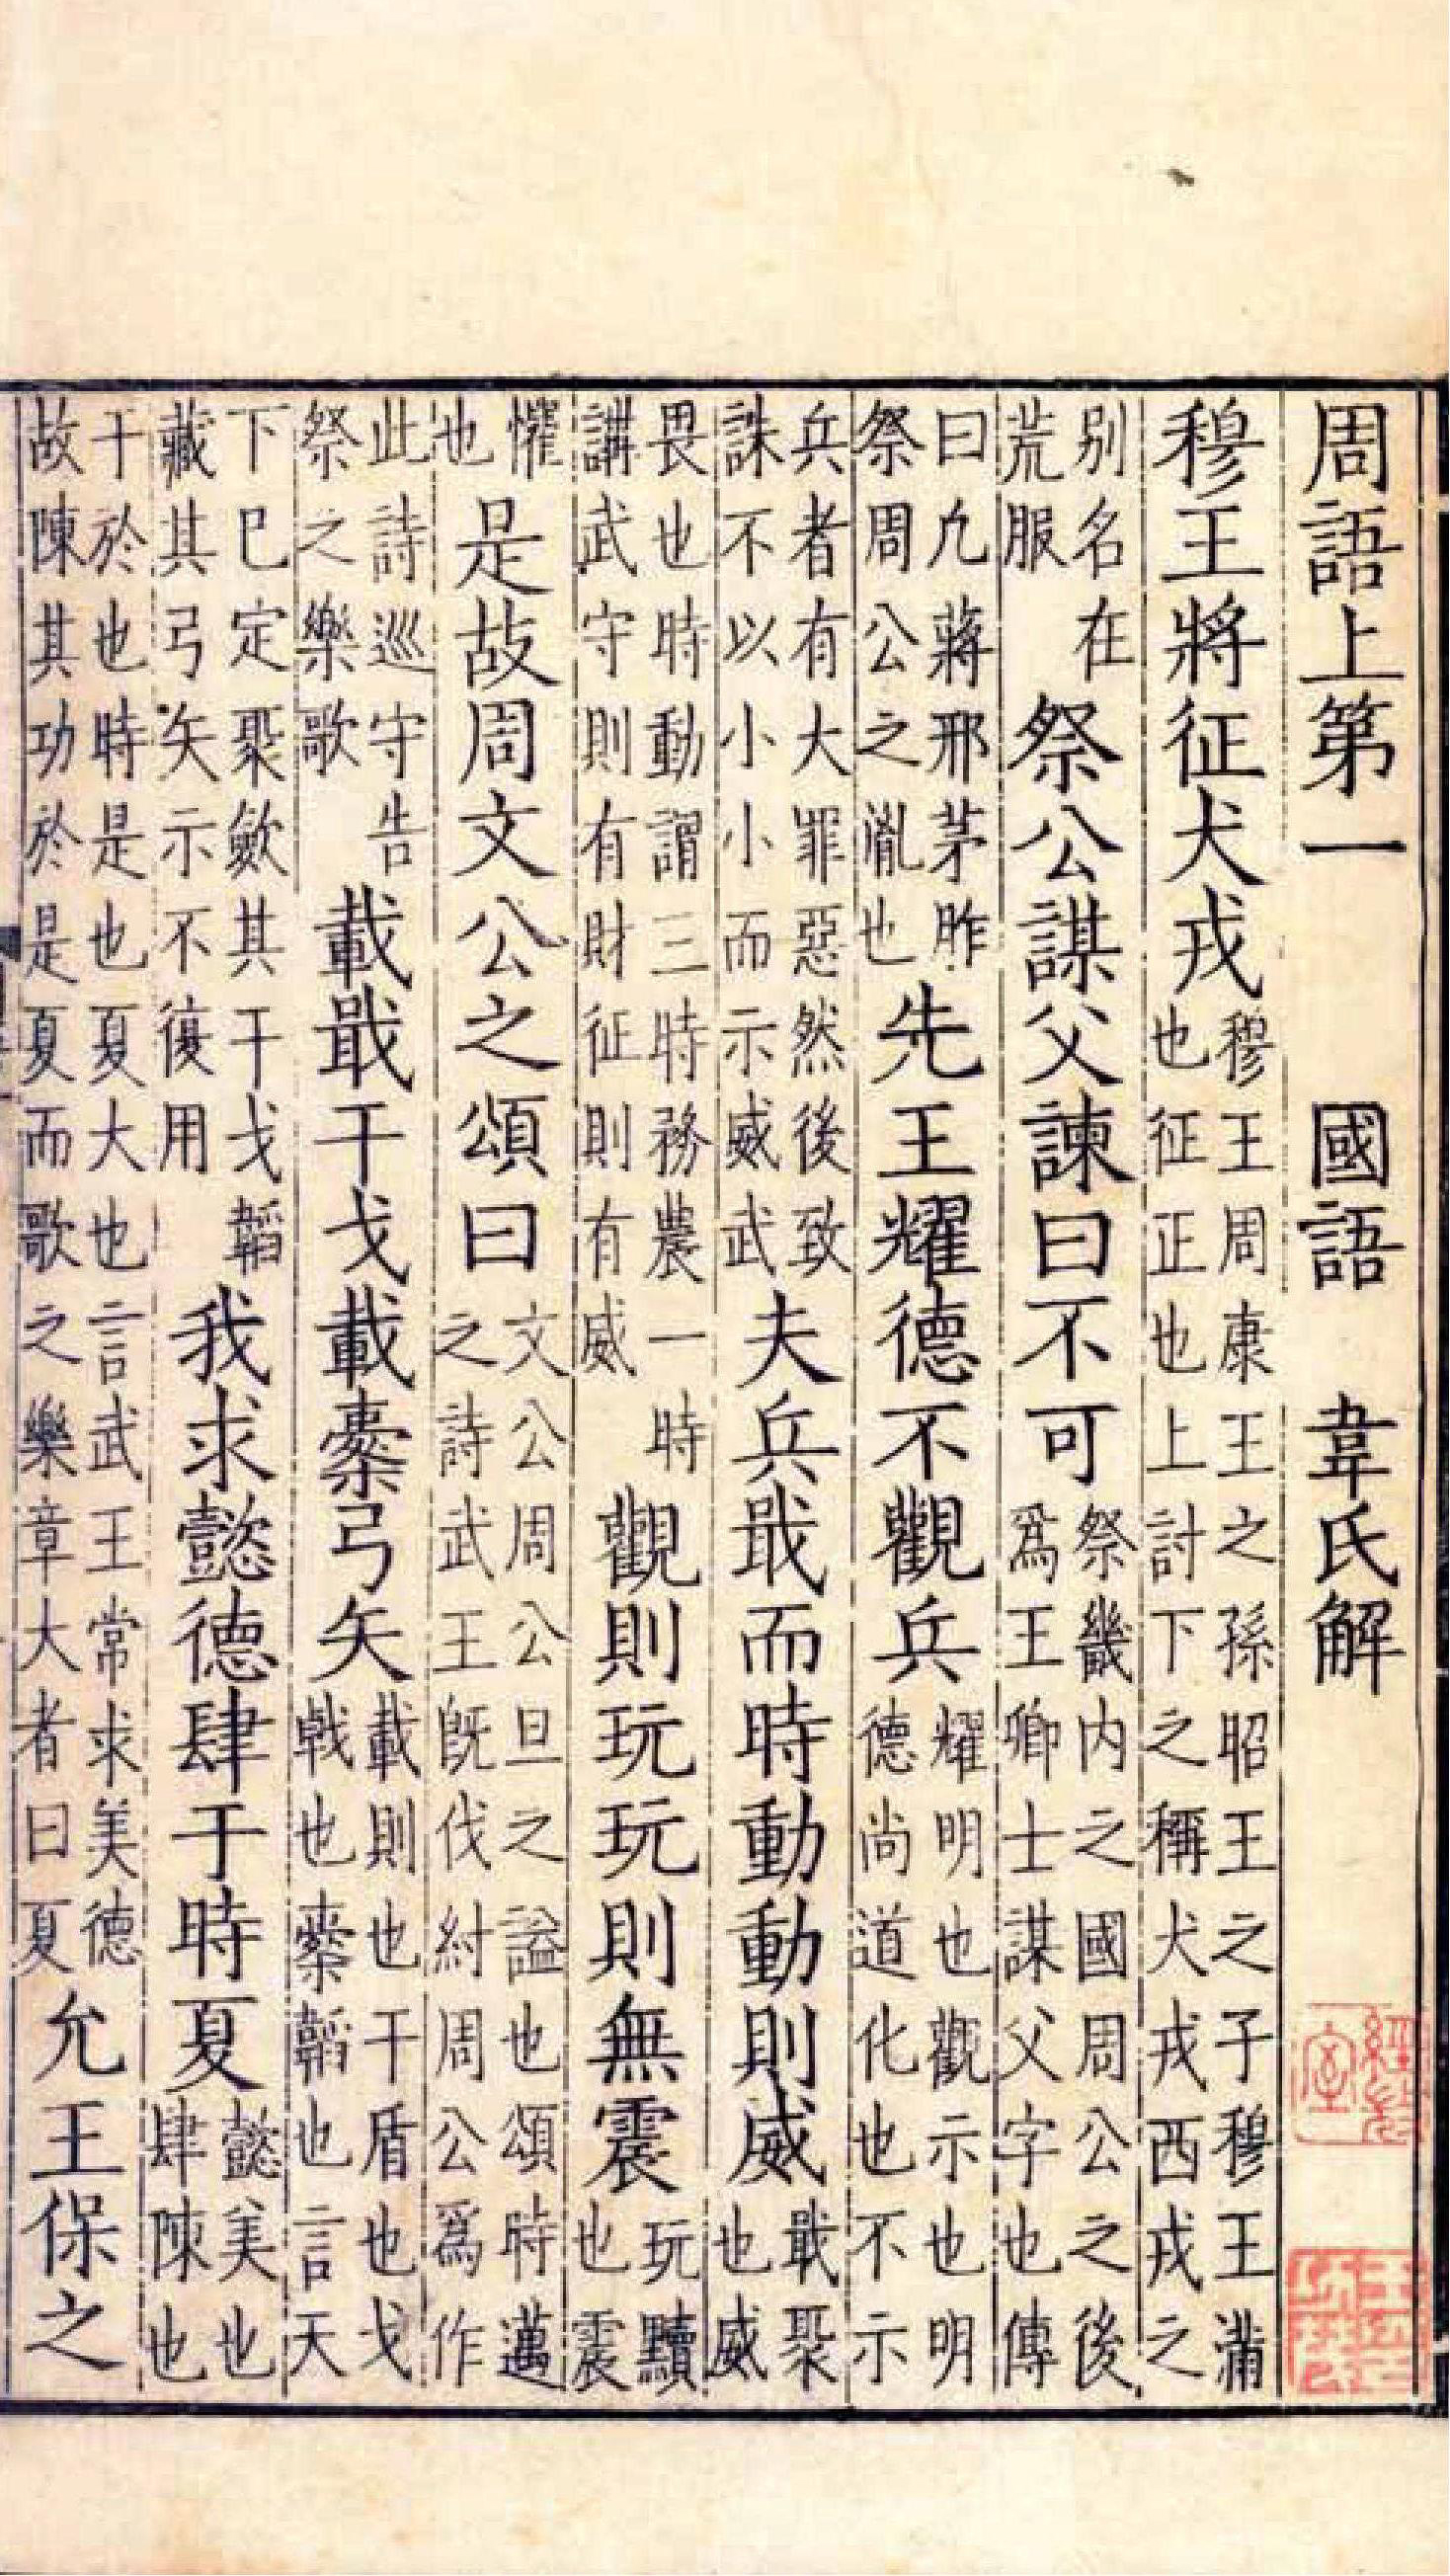 周語上第一　國語　韋氏解
穆王將征犬戎穆王周康王之孫昭王之子穆王蒲也征正也上討下之稱犬戎西戎之
别名在荒服祭公謀父諫曰不可祭畿内之國周公之後爲王卿士謀父字也傳
曰凡蔣邢茅胙祭周公之胤也先王耀德不觀兵耀明也觀示也明德尚道化也不示
兵者有大罪惡然後致誅不以小小而示威武夫兵戢而時動動則威戢聚也威
畏也時動謂三時務農一時講武守則有財征則有威觀則玩玩則無震玩黷也震
懼也是故周文公之頌曰文公周公旦之謚也頌時邁之詩武王旣伐紂周公爲作
此詩巡守告祭之樂歌載戢干戈載櫜弓矢載則也干盾也戈戟也櫜韜也言天
下已定聚斂其干戈韜藏其弓矢示不復用我求懿德肆于時夏懿美也肆陳也
于於也時是也夏大也言武王常求美德故陳其功於是夏而歌之樂章大者曰夏允王保之